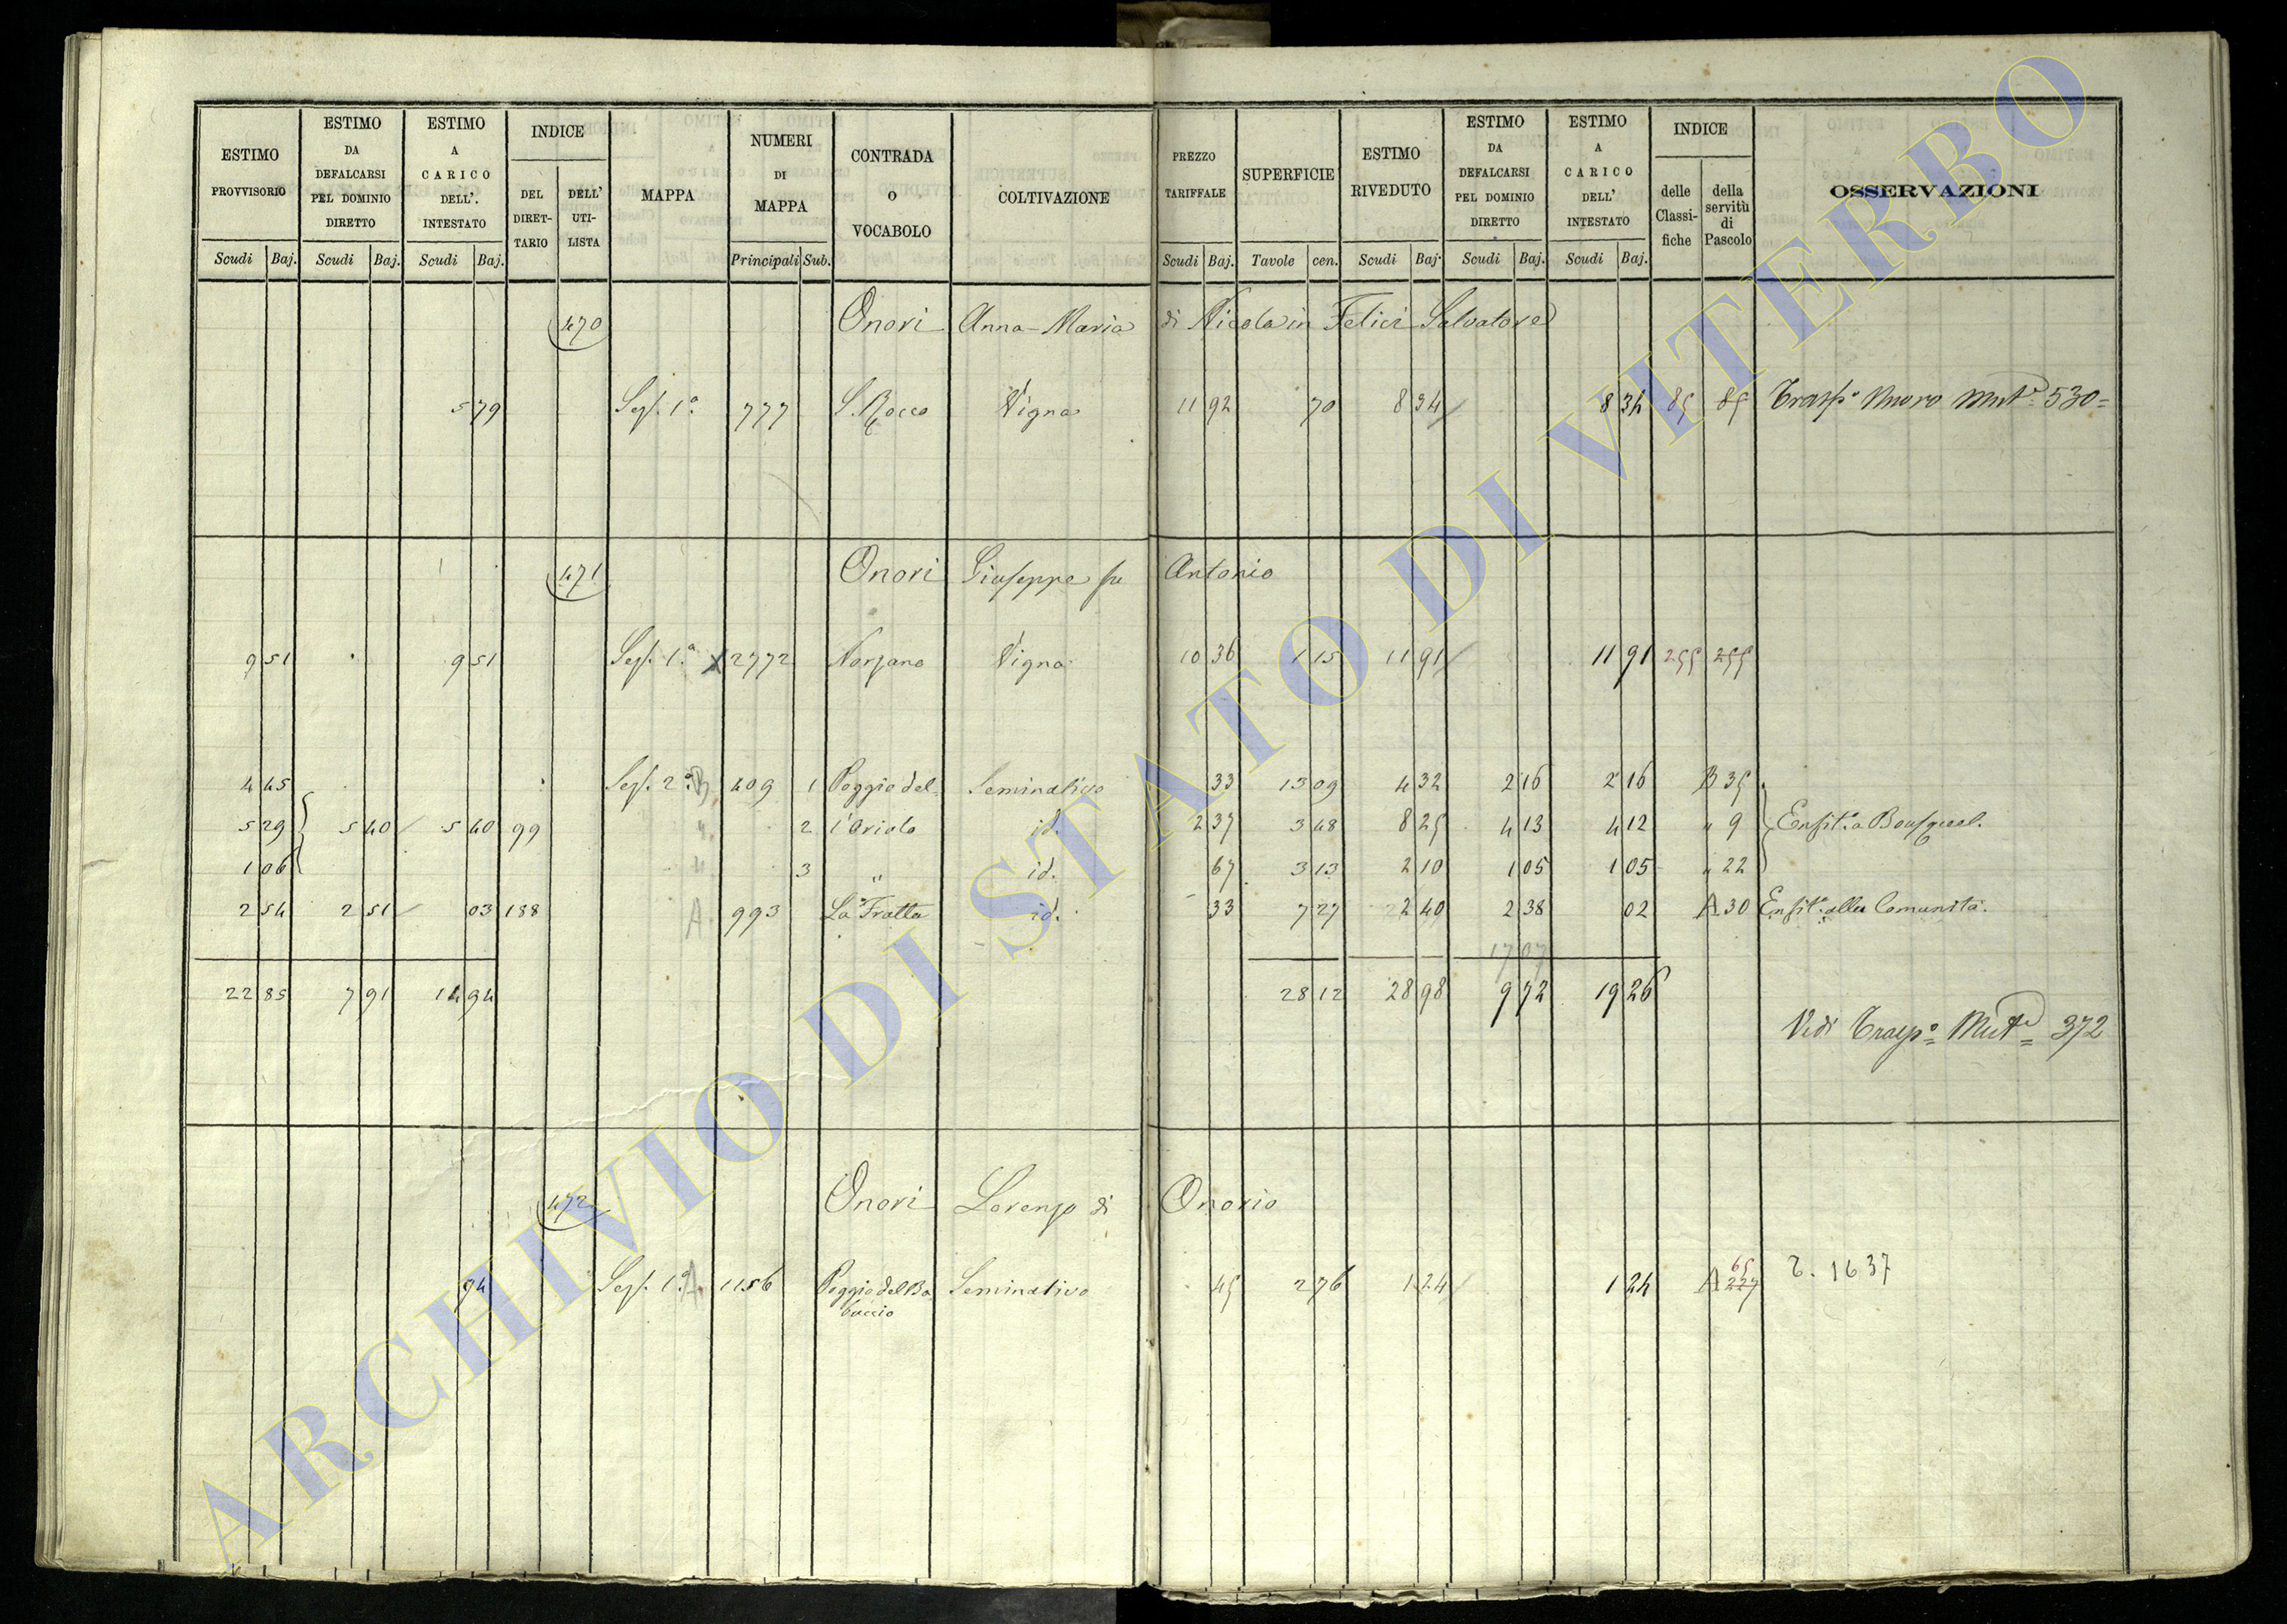 ESTIMO PROVVISORIO
ESTIMO DA DEFALCARSI PEL DOMINIO DIRETTO
ESTIMO A CARICO DELL'. INTESTATO
INDICE
DEL DIRET-TARIO
DELL' UTI-LISTA
MAPPA
NUMERI DI MAPPA
CONTRADA O VOCABOLO
COLTIVAZIONE
PREZZO TARIFFALE
SUPERFICIE
ESTIMO RIVEDUTO
ESTIMO DA DEFALCARSI PEL DOMINIO DIRETTO
ESTIMO A CARICO DELL' INTESTATO
INDICE
delle Classi-fiche
della servitù di Pascolo
OSSERVAZIONI
Scudi Baj. Scudi Baj. Scudi Baj. Principali Sub. Scudi Baj. Tavole cen. Scudi Baj. Scudi Baj. Scudi Baj.
470 Onori Anna-Maria di Nicola in Felici Salvatore
5 79 Sez. 1ª 777 S. Rocco Vigna 11 92 70 8 34 8 34 85 85 Trasp° Nuovo Mut. 530=
471 Onori Giuseppe fu Antonio
9 51 9 51 Sez. 1ª 2772 Norzano Vigna 10 36 1 15 11 91 11 91 255 255
4 45 Sez. 2ª B 409 1 Poggio del Seminativo 33 13 09 4 32 2 16 2 16 B 35
5 29 5 40 5 40 99 " 2 l'Oriolo id. 2 37 3 48 8 25 4 13 4 12 " 9 Enfit. a Bousquet.
1 06 " 3 " id. 67 3 13 2 10 1 05 1 05 " 22
2 54 2 51 03 188 A 993 La Fratta id. 33 7 27 2 40 2 38 02 A 30 Enfit. alla Comunità.
17 07
22 85 7 91 14 94 28 12 28 98 9 72 19 26
Vedi Trasp° Mut. 372
472 Onori Lorenzo di Onorio
94 Sez. 1ª A. 1156 Poggio del Ba Seminativo 45 2 76 1 24 1 24 A 227 65 T. 1637
buccio
ARCHIVIO DI STATO DI VITERBO